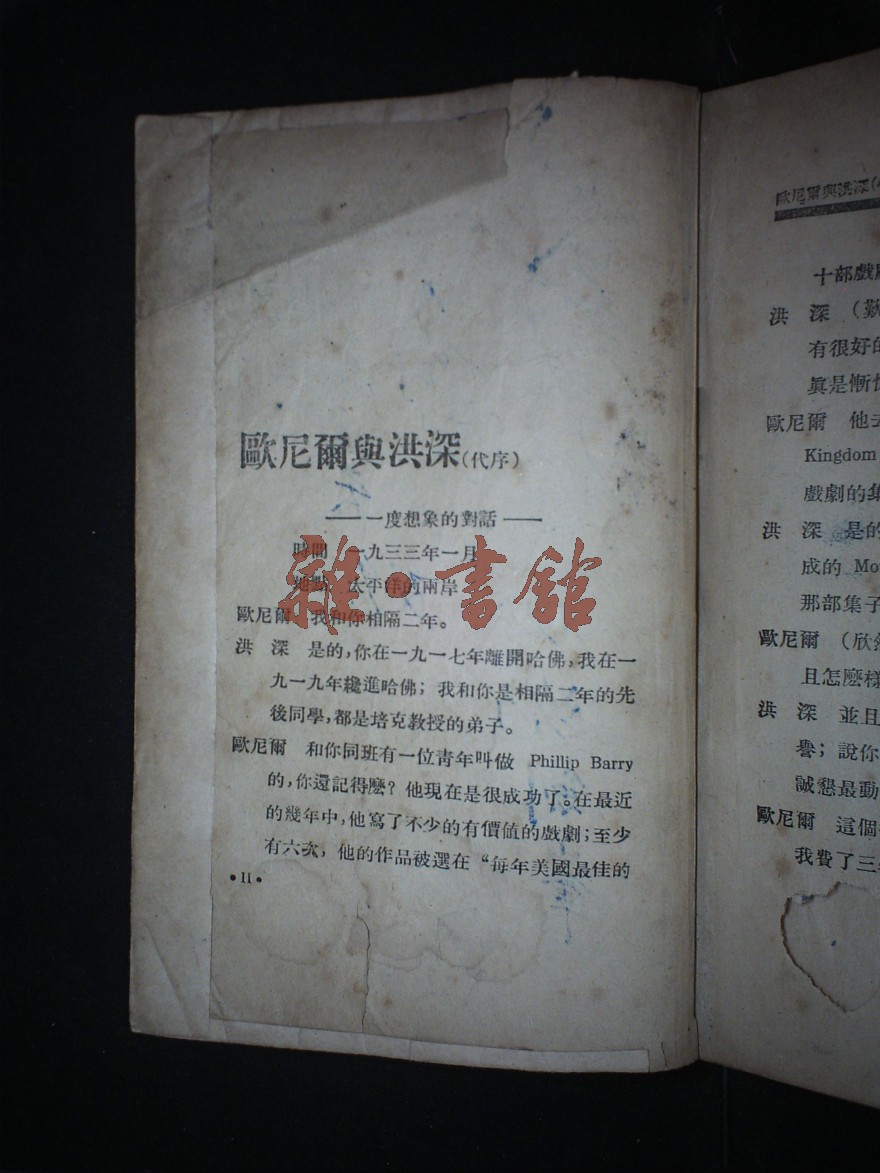 歐尼爾與洪深(代序)
——一度想象的對話——
時間 一九三三年一月
地點 太平洋的兩岸
歐尼爾 我和你相隔二年。
洪 深 是的,你在一九一七年離開哈佛,我在一
九一九年纔進哈佛;我和你是相隔二年的先
後同學,都是培克教授的弟子。
歐尼爾 和你同班有一位青年叫做 Phillip Barry
的,你還記得麽?他現在是很成功了。在最近
的幾年中,他寫了不少的有價値的戲劇;至少
有六次,他的作品被選在“每年美國最佳的
•11•
雜·書館
歐尼爾與洪深
十部戲
洪 深 (歎
有很好的
眞是慚
歐尼爾 他去
Kingdom
戲劇的集
洪 深 是的
成的 Mo
那部集子
歐尼爾 (欣然
且怎麽樣
洪 深 並且
譽;說你
誠懇最動
歐尼爾 這個
我費了三